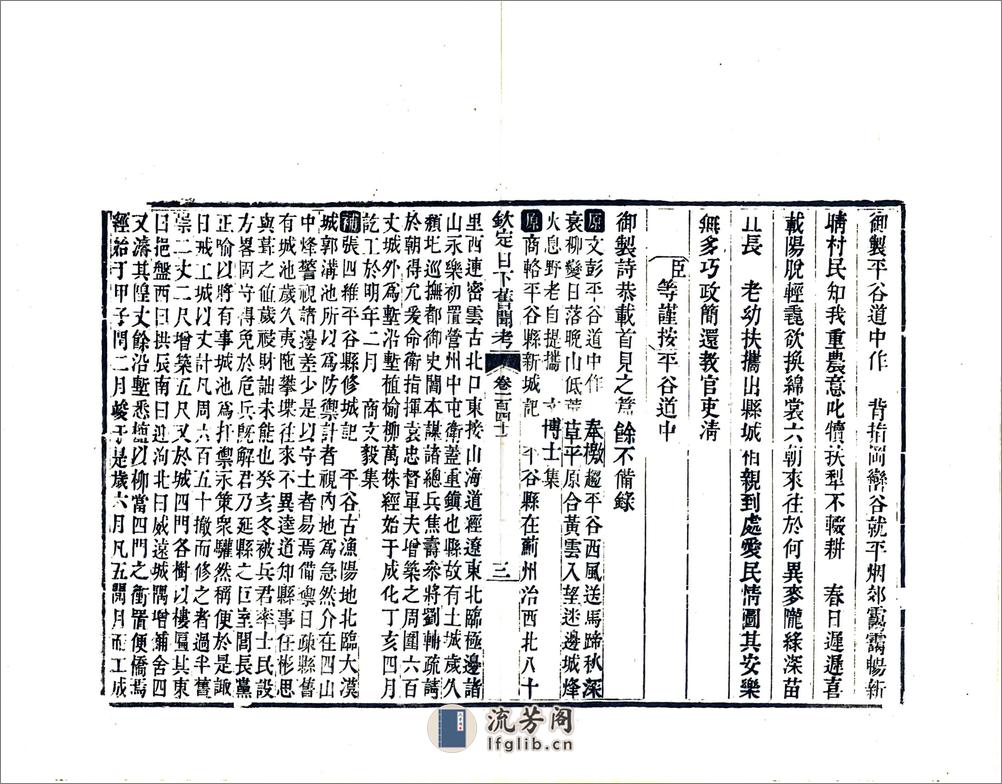 御製平谷道中作　背指岡巒谷就平烟郊靄靄暢新
晴村民知我重農意叱犢扶犁不輟耕　春日遲遲喜
載陽脫輕毳欲換綿裳六朝來往於何異麥隴綠深苗
且長　老幼扶攜出縣城　親到處愛民情圖其安樂
無多巧政簡還教官吏清
臣等謹按平谷道中
御製詩恭載首見之篇餘不備錄
原文彭平谷道中作　奉檄趨平谷西風送馬蹄秋深
衰柳變日落晚山低　草平原合黃雲入望迷邊城烽
火息野老自提攜　博士集
原商輅平谷縣新城記　平谷縣在薊州治西北八十
欽定日下舊聞考　卷一百四十二　三
里西連密雲古北口東接山海道經遼東北臨極邊諸
山永樂初置營州中屯衛蓋重鎮也縣故有土城歲久
頹圮巡撫都御史閻本謀諸總兵焦壽參將劉輔疏請
於朝得允爰命衛指揮袁忠督軍夫增築之周圍六百
丈城外爲塹沿塹植榆柳萬株經始于成化丁亥四月
訖工於明年二月　商文毅集
補張四維平谷縣修城記　平谷古漁陽地北臨大漠
城郭溝池所以爲防禦計者視內地爲急然介在四山
中烽警視諸邊差少是以守土者易焉備禦日疎縣舊
有城池歲久夷陁攀堞往來不異逵道知縣事任彬思
與葺之値歲祲財詘未能也癸亥冬被兵君率士民設
方畧固守得免於危兵既解君乃延縣之巨室閭長黨
正喻以將有事城池爲扞禦永策衆驩然稱便於是諏
日戒工城以丈計凡周六百五十撤而修之者過半舊
崇二丈二尺增築五尺又於城四門各樹以樓匾其東
曰挹盤西曰拱辰南曰迎泃北曰威遠城隅增鋪舍四
又濬其隍丈餘沿塹悉植以柳當四門之衝置便橋焉
經始于甲子閏二月竣于是歲六月凡五閱月而工成
流芳阁
lfglib.cn